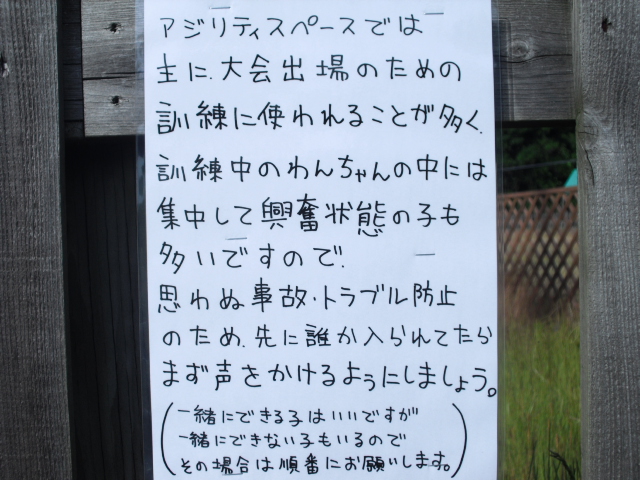 アジリティスペースでは
主に、大会出場のための
訓練に使われることが多く、
訓練中のわんちゃんの中には
集中して興奮状態の子も
多いですので、
思わぬ事故・トラブル防止
のため、先に誰か入られてたら
まず声をかけるようにしましょう。
(一緒にできる子はいいですが
一緒にできない子もいるので
その場合は順番にお願いします。)